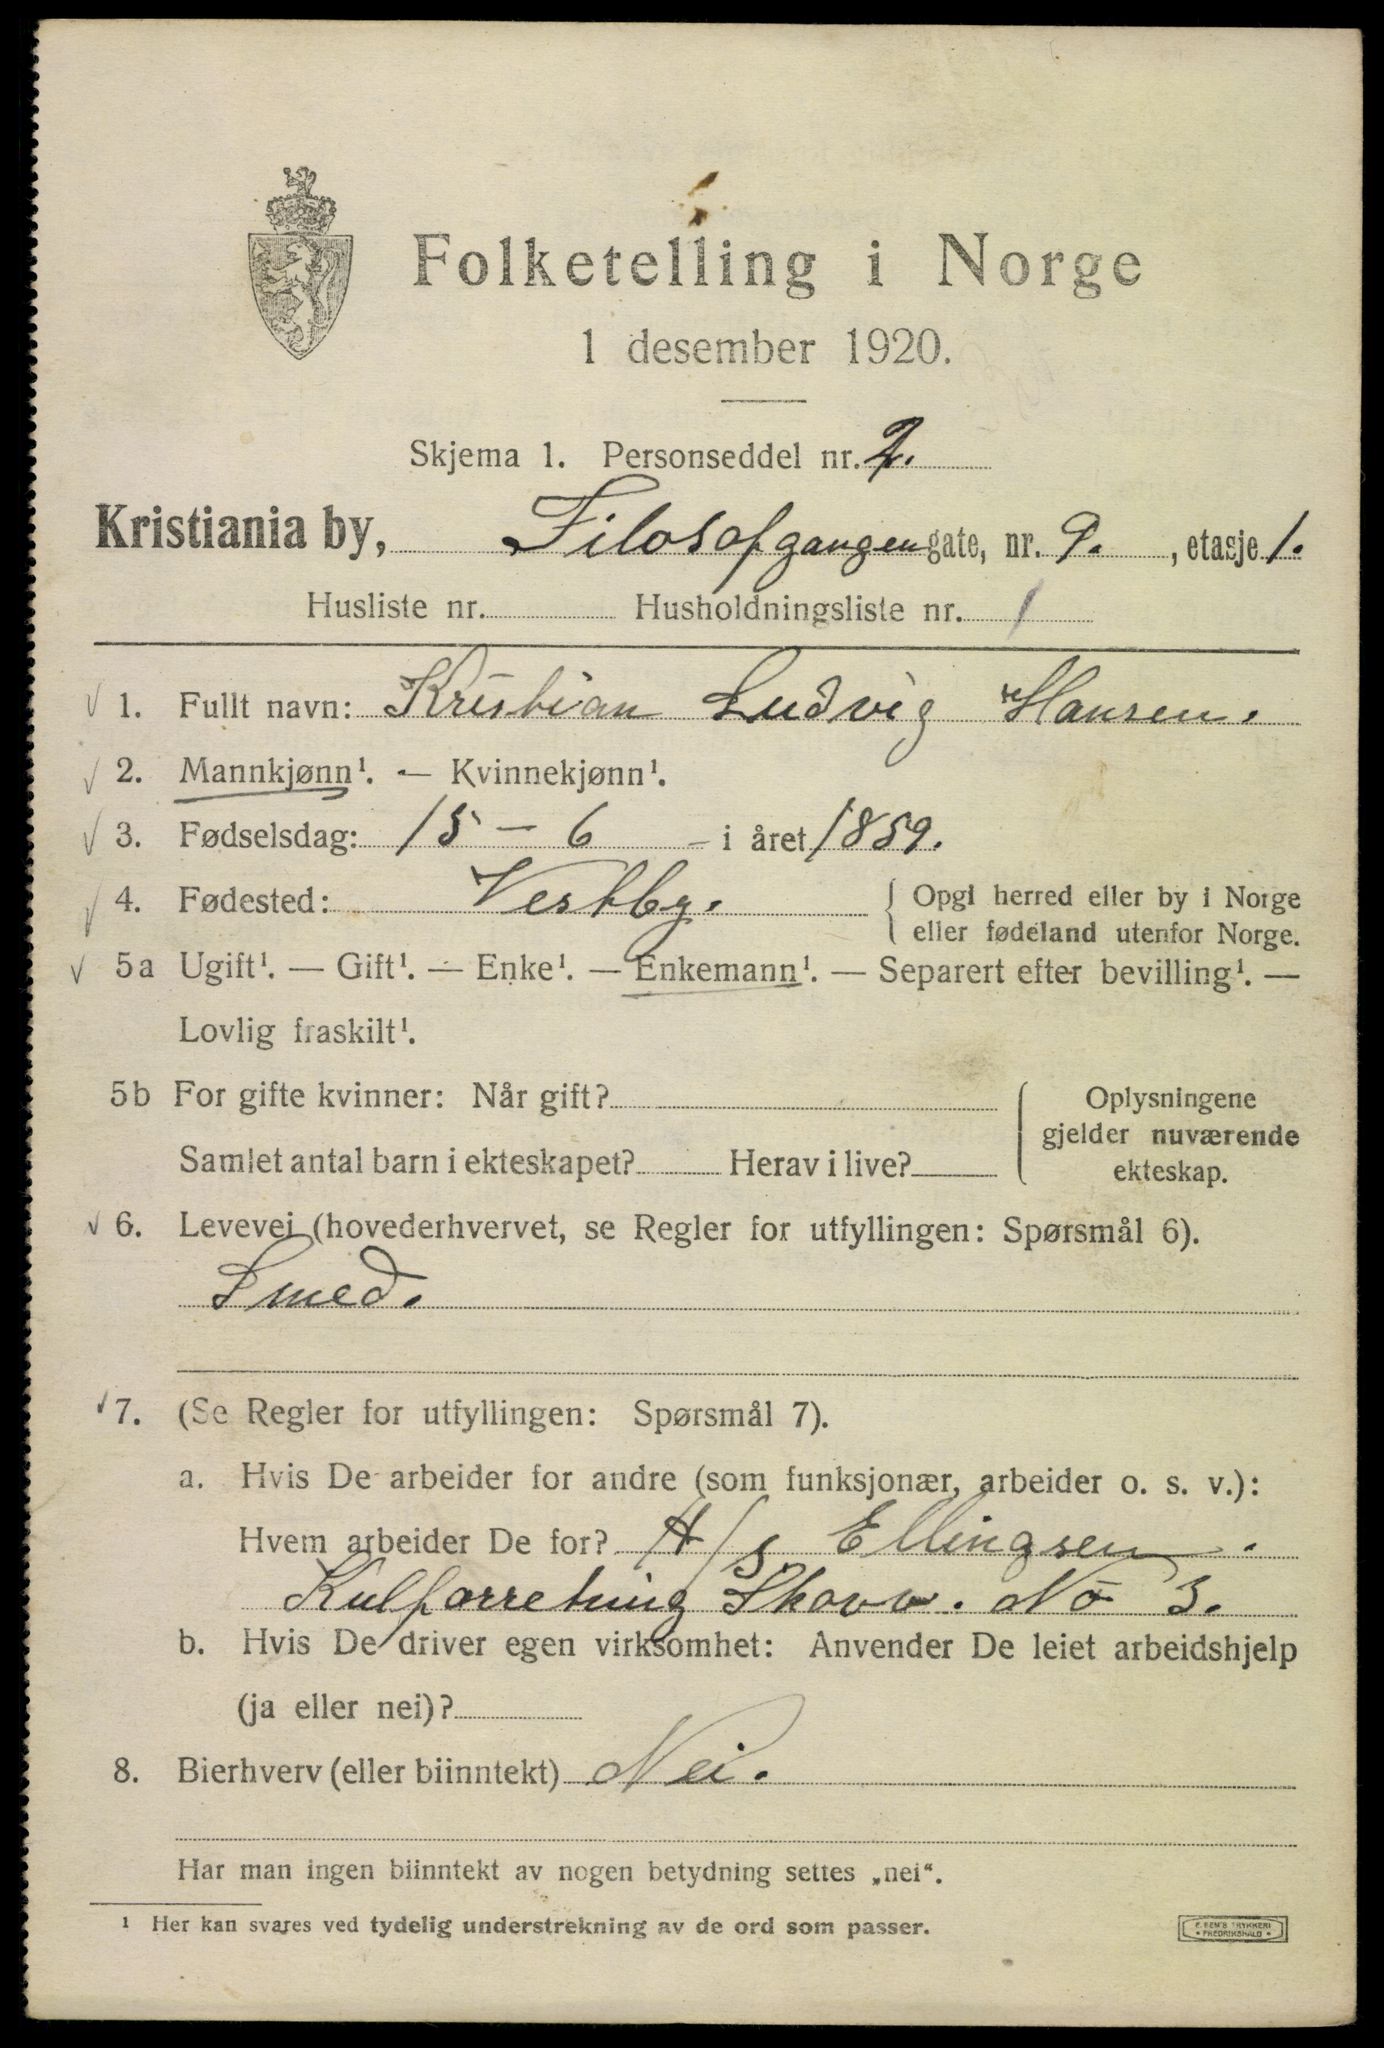 Folketelling i Norge
1 desember 1920.
Skjema 1. Personseddel nr. 2.
Kristiania by, Filosofgangen gate, nr. 9. , etasje 1.
Husliste nr. Husholdningsliste nr. 1
1. Fullt navn: Kristian Ludvig Hansen.
2. Mannkjønn¹. — Kvinnekjønn¹.
3. Fødselsdag: 15 – 6 - i året 1859.
4. Fødested: Vestby. { Opgi herred eller by i Norge
eller fødeland utenfor Norge.
5a Ugift¹. — Gift¹. — Enke¹. — Enkemann¹. — Separert efter bevilling¹. —
Lovlig fraskilt¹.
5b For gifte kvinner: Når gift? Oplysningene
gjelder nuværende
Samlet antal barn i ekteskapet? Herav i live?
ekteskap.
6. Levevei (hovederhvervet, se Regler for utfyllingen: Spørsmål 6).
Smed.
7. (Se Regler for utfyllingen: Spørsmål 7).
a. Hvis De arbeider for andre (som funksjonær, arbeider o. s. v.):
Hvem arbeider De for? A/S Ellingsen.
Kulforretning No 3.
b. Hvis De driver egen virksomhet: Anvender De leiet arbeidshjelp
(ja eller nei)?
8. Bierhverv (eller biinntekt) Nei.
Har man ingen biinntekt av nogen betydning settes „nei“.
¹ Her kan svares ved tydelig understrekning av de ord som passer.
E. SEM'S TRYKKERI
• FREDRIKSHALD •